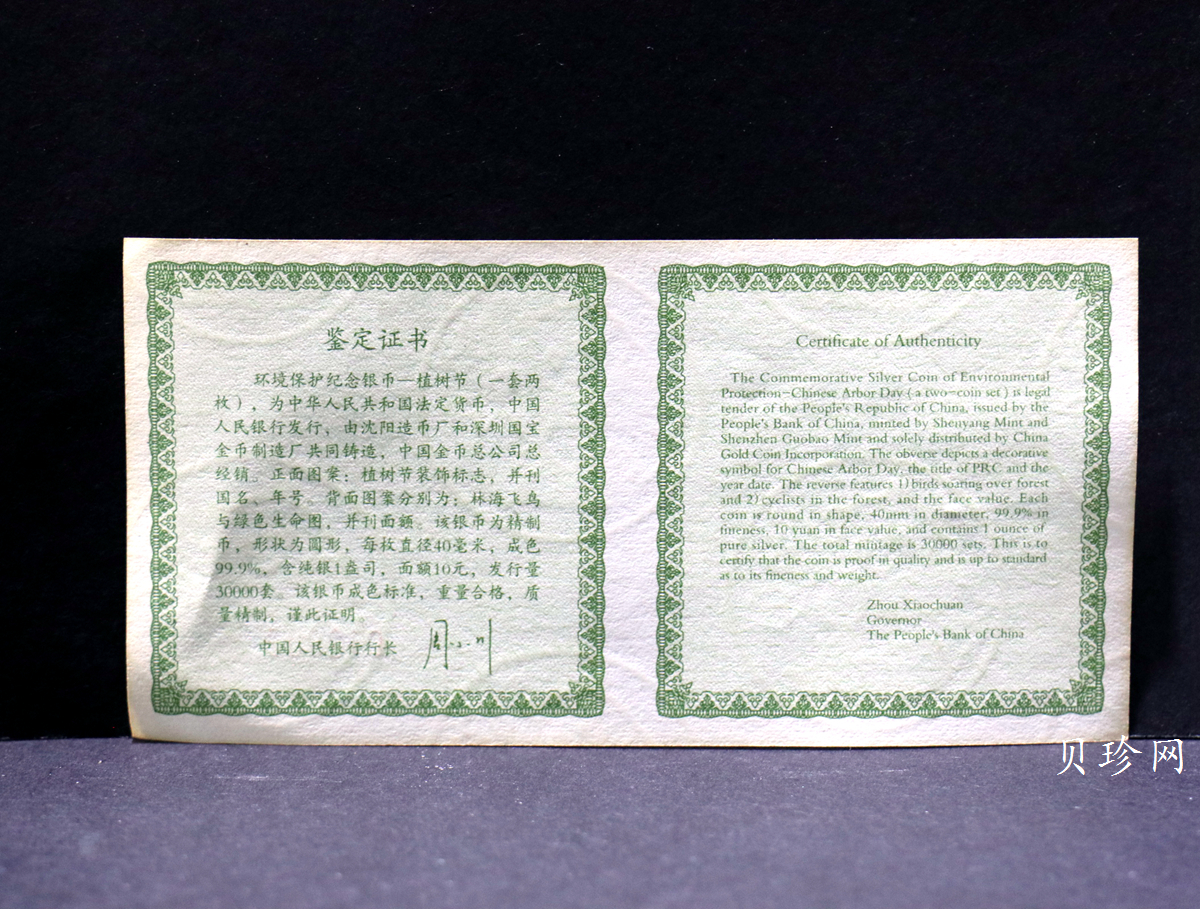 鉴定证书
环境保护纪念银币—植树节（一套两
枚），为中华人民共和国法定货币，中国
人民银行发行，由沈阳造币厂和深圳国宝
金币制造厂共同铸造，中国金币总公司总
经销。正面图案：植树节装饰标志，并刊
国名、年号。背面图案分别为：林海飞鸟
与绿色生命图，并刊面额。该银币为精制
币，形状为圆形，每枚直径40毫米，成色
99.9%，含纯银1盎司，面额10元，发行量
30000套。该银币成色标准，重量合格，质
量精制，谨此证明。
中国人民银行行长 周小川
Certificate of Authenticity
The Commemorative Silver Coin of Environmental
Protection—Chinese Arbor Day (a two-coin set) is legal
tender of the People's Republic of China, issued by the
People's Bank of China, minted by Shenyang Mint and
Shenzhen Guobao Mint and solely distributed by China
Gold Coin Incorporation. The obverse depicts a decorative
symbol for Chinese Arbor Day, the title of PRC and the
year date. The reverse features 1) birds soaring over forest
and 2) cyclists in the forest, and the face value. Each
coin is round in shape, 40mm in diameter, 99.9% in
fineness, 10 yuan in face value, and contains 1 ounce of
pure silver. The total mintage is 30000 sets. This is to
certify that the coin is proof in quality and is up to standard
as to its fineness and weight.
Zhou Xiaochuan
Governor
The People's Bank of China
贝珍网